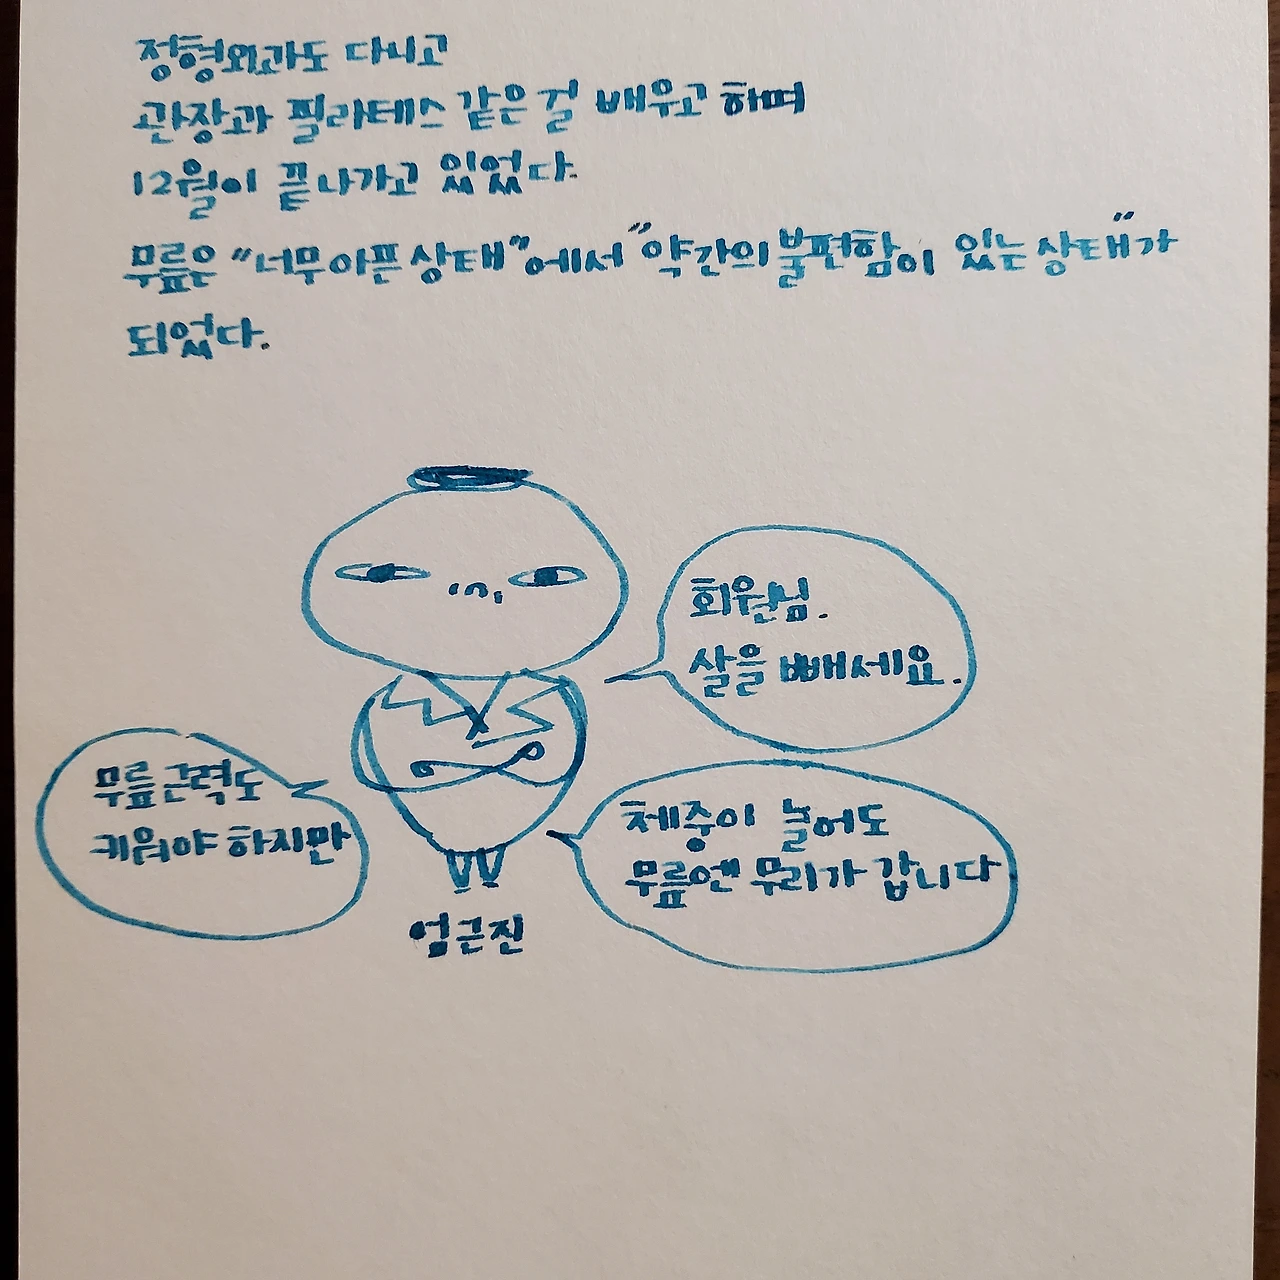 정형외과도 다니고
관장과 필라테스 같은 걸 배우고 하며
12월이 끝나가고 있었다.
무릎은 "너무 아픈 상태"에서 "약간의 불편함이 있는 상태"가
되었다.
회원님.
살을 빼세요.
무릎 근력도
키워야 하지만
체중이 늘어도
무릎엔 무리가 갑니다
엄근진